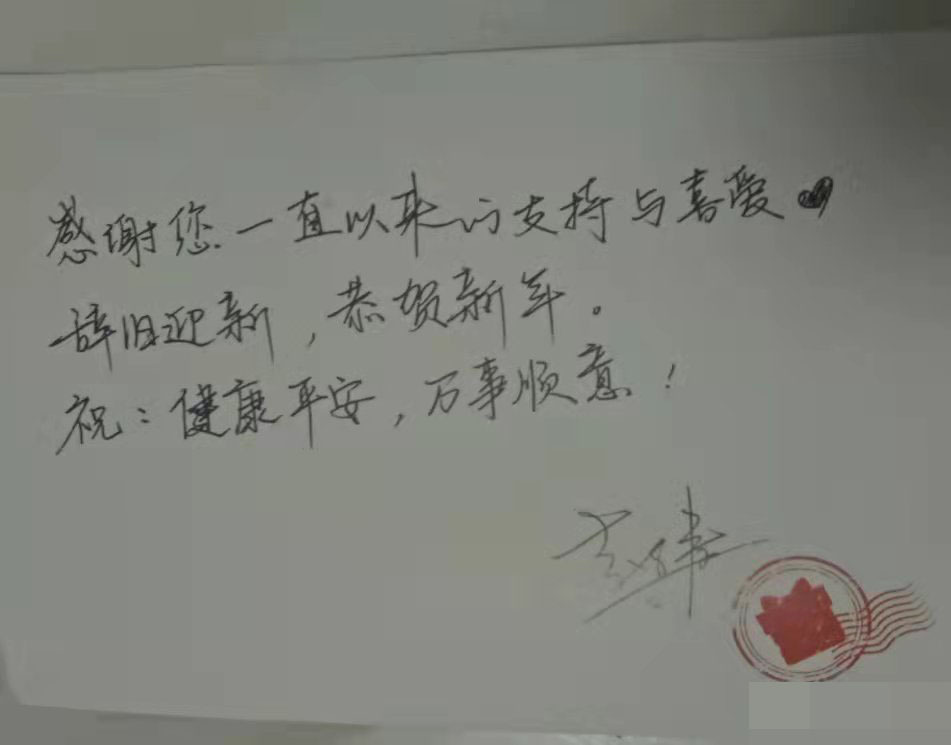 感谢您一直以来的支持与喜爱
辞旧迎新，恭贺新年。
祝：健康平安，万事顺意！